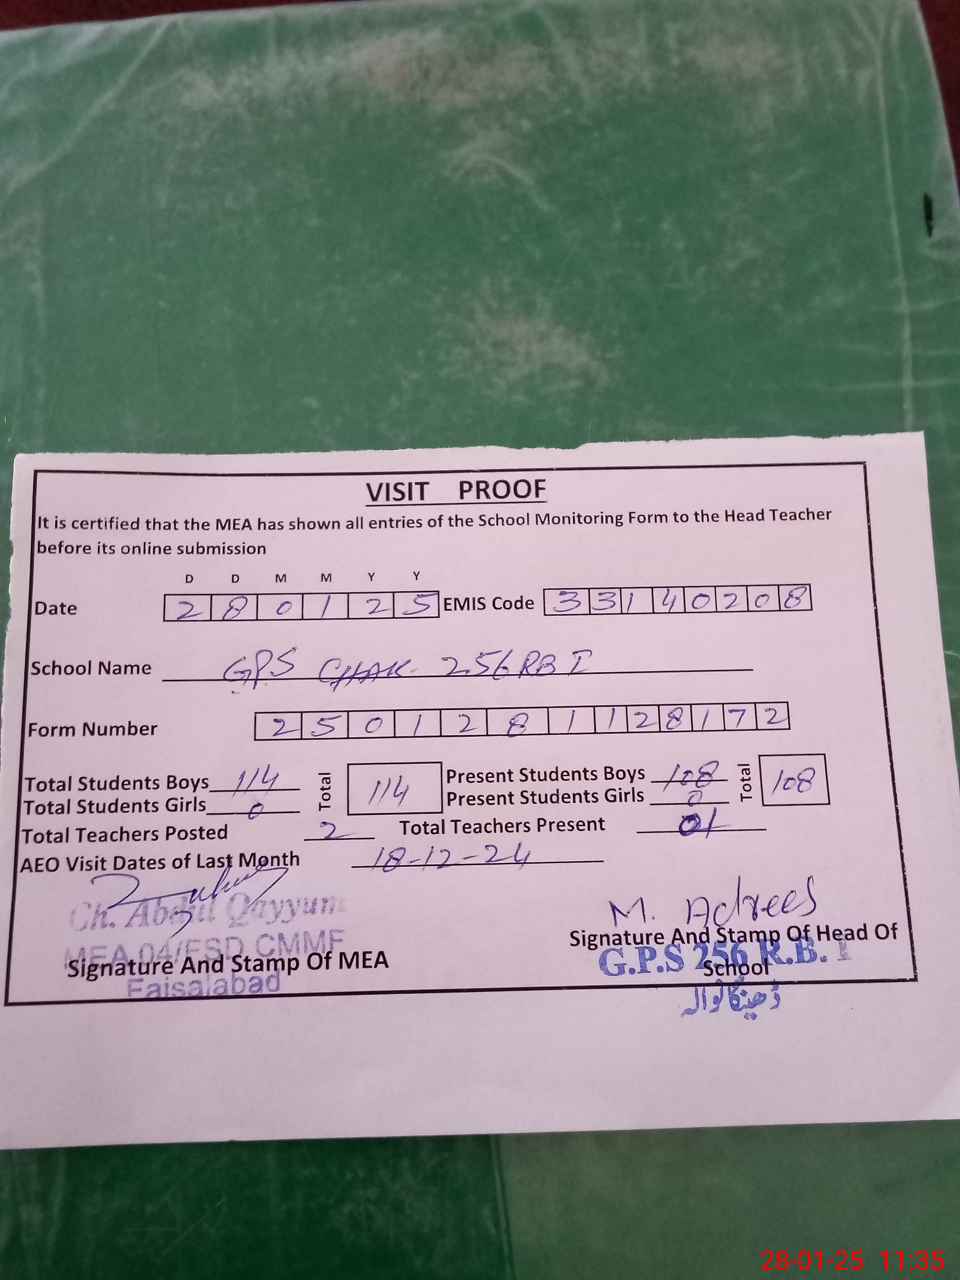 VISIT PROOF
It is certified that the MEA has shown all entries of the School Monitoring Form to the Head Teacher
before its online submission
D D M M Y Y
Date 2 8 0 1 2 5 EMIS Code 3 3 1 4 0 2 0 8
School Name GPS CHAK 256 RB I
Form Number 2 5 0 1 2 8 1 1 2 8 1 7 2
Total Students Boys 114 Total 114 Present Students Boys 108 Total 108
Total Students Girls 0 Present Students Girls 0
Total Teachers Posted 2 Total Teachers Present 01
AEO Visit Dates of Last Month 18-12-24
Ch. Abdul Qayyum
MEA 04/FSD CMMF
Faisalabad
Signature And Stamp Of MEA
M. Adrees
Signature And Stamp Of Head Of
School
G.P.S 256 R.B. I
ڈھینگانوالہ
28-01-25 11:35